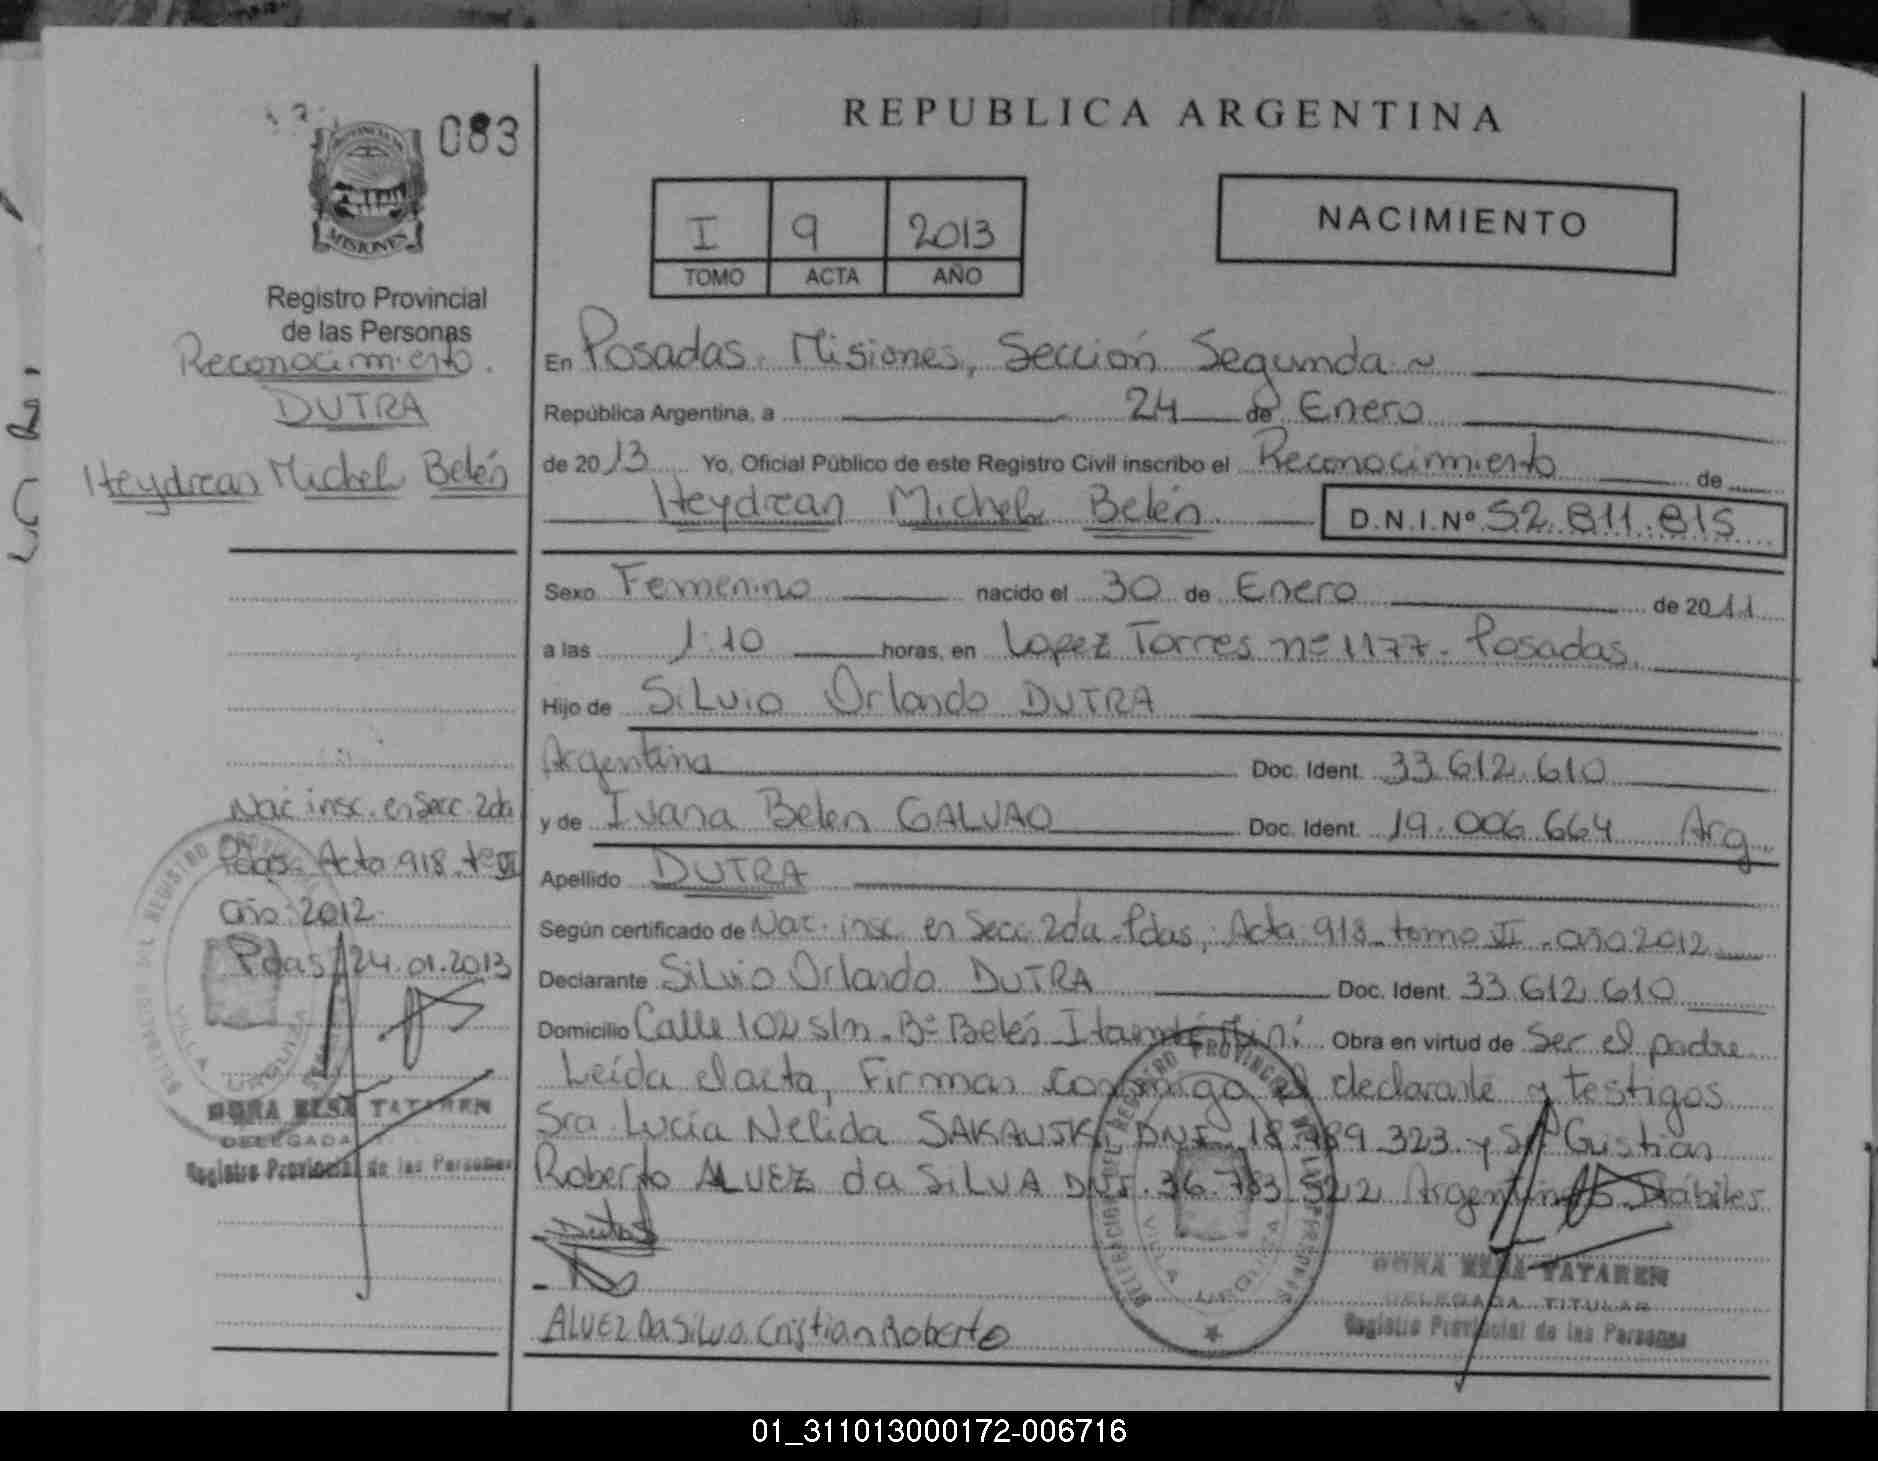 083
MISIONES
Registro Provincial
de las Personas
Reconocimiento.
DUTRA
Heydrean Michel Belén
Nac insc. en Secc. 2da
Pdas. Acta 918. tº VI
año: 2012.
Pdas 24.01.2013
TATAREN
DELEGADA
Registro Provincial de las Personas
REPUBLICA ARGENTINA
I 9 2013
TOMO ACTA AÑO
NACIMIENTO
En Posadas. Misiones, Sección Segunda
República Argentina, a 24 de Enero
de 2013 Yo, Oficial Público de este Registro Civil inscribo el Reconocimiento de
Heydrean Michel Belén D.N.I. Nº 52.811.815
Sexo Femenino nacido el 30 de Enero de 2011
a las 1:10 horas, en Lopez Torres nº 1177. Posadas.
Hijo de Silvio Orlando DUTRA
Argentina Doc. Ident. 33.612.610
y de Ivana Belen GALVAO Doc. Ident. 19.006.664 Arg
Apellido DUTRA
Según certificado de Nac. insc. en Secc. 2da. Pdas, Acta 918. tomo VI. año 2012
Declarante Silvio Orlando DUTRA Doc. Ident. 33.612.610
Domicilio Calle 102 s/n. Bº Belén Itaembé Miní Obra en virtud de Ser el padre
Leída el acta, Firman conmigo el declarante y testigos
Sra. Lucía Nelida DNI. 18.789.323 y Sr. Cristian
Roberto ALVEZ da SILVA DNI. 36.783.522 Argentinos. Hábiles
Dutra
ALVEZ Da Silva Cristian Roberto
DELEGACION DEL REGISTRO PROVINCIAL DE LAS PERSONAS
VILLA URQUIZA
TATAREN
DELEGADA TITULAR
Registro Provincial de las Personas
01_311013000172-006716